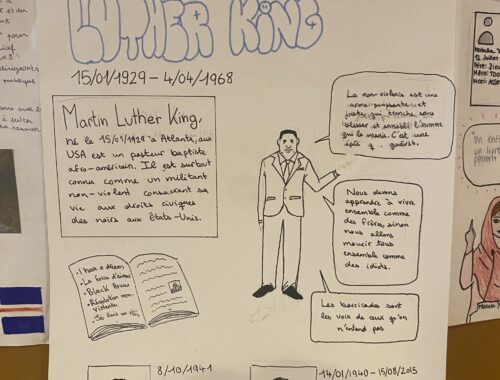 LUTHER KING
15/01/1929 – 4/04/1968
Martin Luther King,
né le 15/01/1929 à Atlanta, aux
USA est un pasteur baptiste
afro-américain. Il est surtout
connu comme un militant
non-violent consacrant sa
vie aux droits civiques
des noirs aux États-Unis.
La non-violence est une
arme puissante et
juste, qui tranche sans
blesser et ennoblit l'homme
qui la manie. C'est une
épée qui guérit.
Nous devons
apprendre à vivre
ensemble comme
des frères, sinon
nous allons
mourir tous
ensemble comme
des idiots.
Les barricades sont
les voix de ceux qu'on
n'entend pas
• I have a dream
• La force d'aimer
• Black Power
• Révolution non-
violente
• Je fais un rêve
8/10/1941
14/01/1940 – 15/08/2015
et du
pour
publique
12 Juillet
Un enf
un livre
peuvent